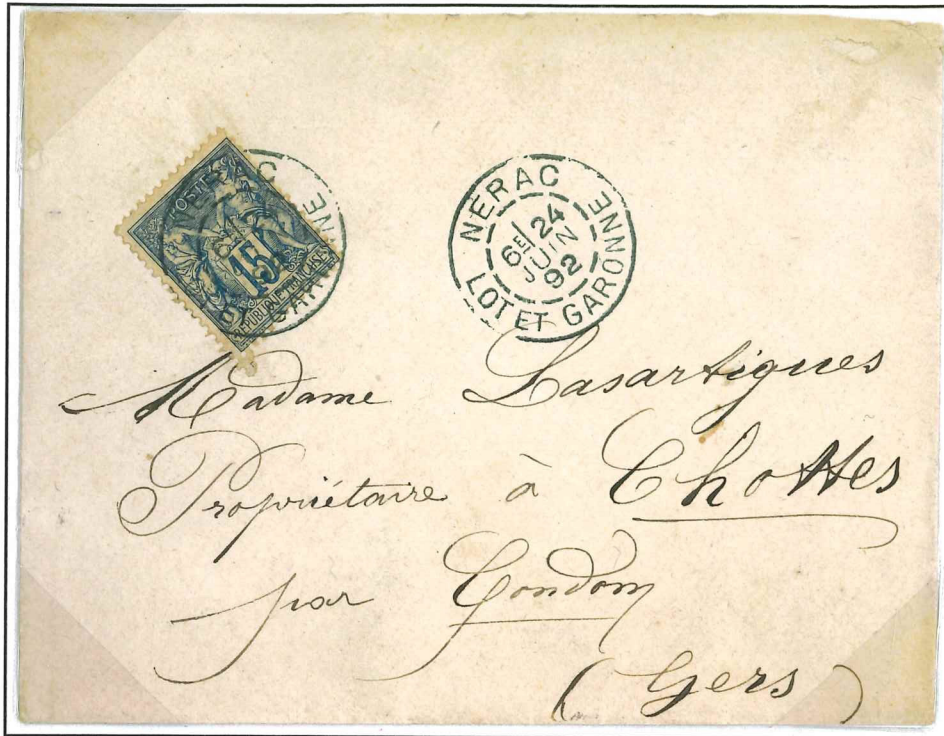 POSTES
15
REPUBLIQUE FRANÇAISE
NERAC
GARONNE
NERAC
6E 24
JUIN
92
LOT ET GARONNE
Madame Lasartigues
Propriétaire à Chottes
par Condom
(Gers)